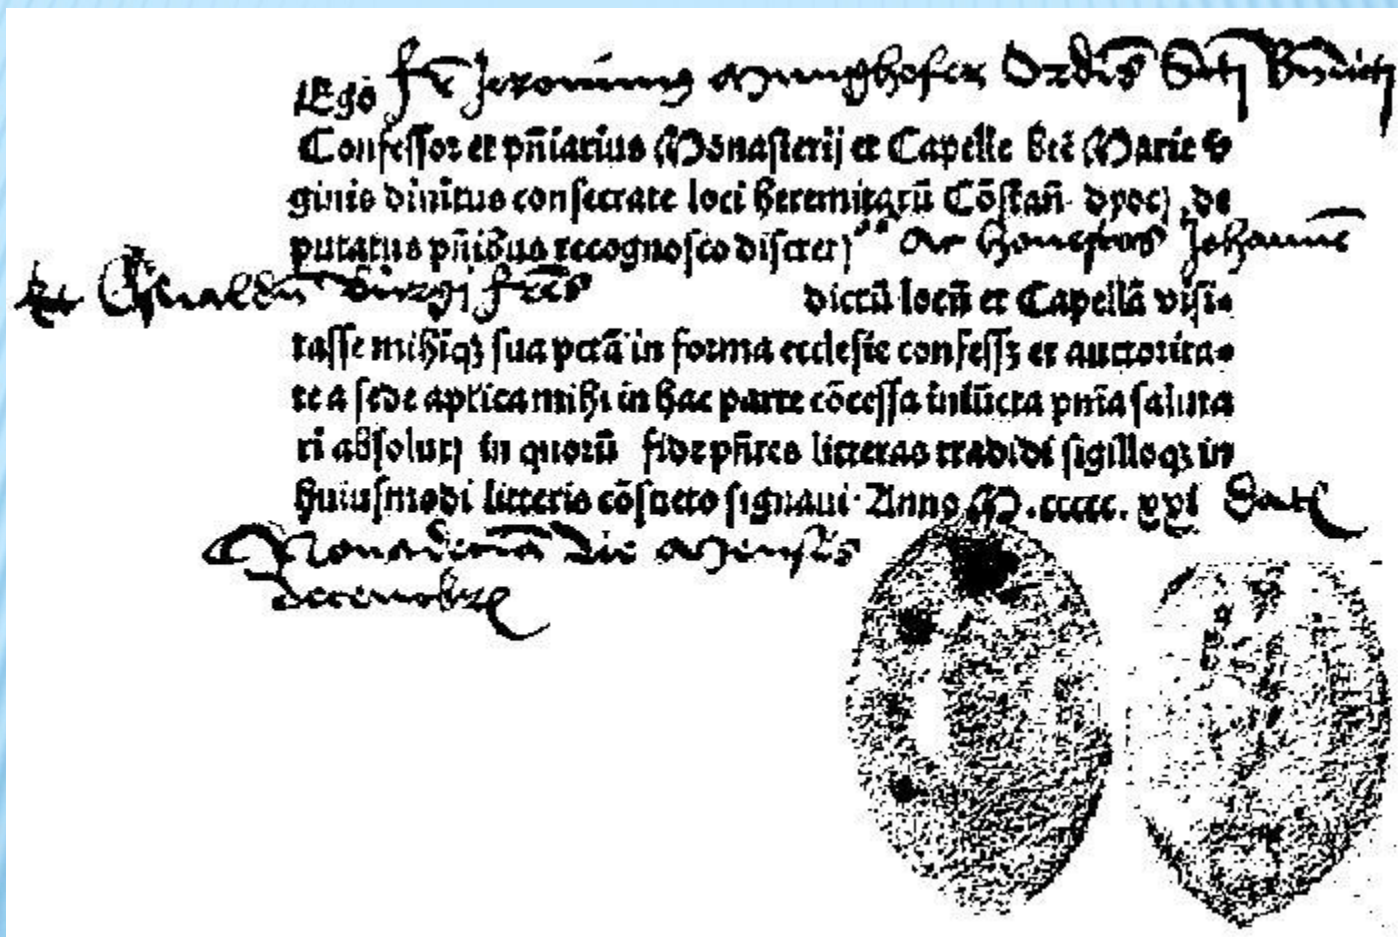 Ego fr̄ Jeronimus Munghofer Ordīs Scti Bn̄dicti
Confessor et pn̄iarius Monasterij et Capelle btē Marie v̄
ginis diuĩtus consecrate loci heremitarū Cōstan̄ dyoc̨ de
putatus pn̄ibus recognosco discret̨ os ac honestos Johannē
et Oswaldū fr̄es
dictū locū et Capellā visi-
tasse mihiq̨ sua pctā in forma ecclesie confess̨ et auctorita-
te a sede aplica mihi in hac parte cōcessa iniūcta pnīa saluta
ri absolui in quorū fide pn̄tes litteras tradidi sigilloq̨ in
huiusmodi litteris cōsueto signaui. Anno M.ccccc.xxi Datꝭ
die Mensis
decembrꝭ